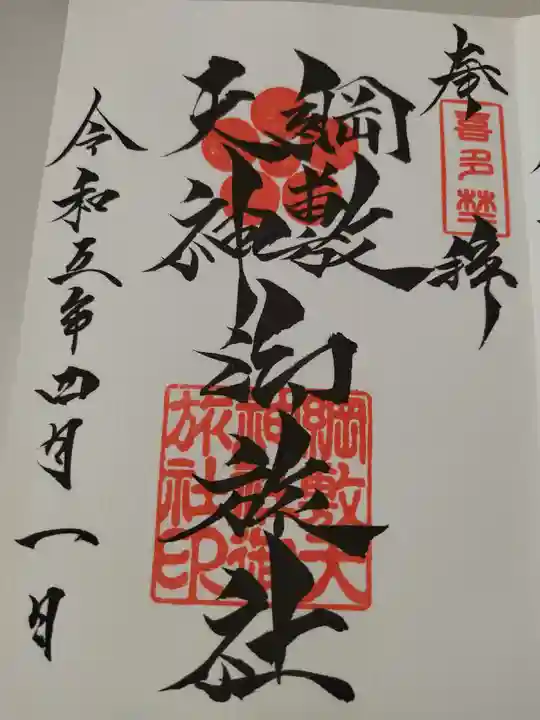 奉拝
喜多埜
綱敷
天神
御旅社
綱敷天
神社御
旅社印
令和五年四月一日